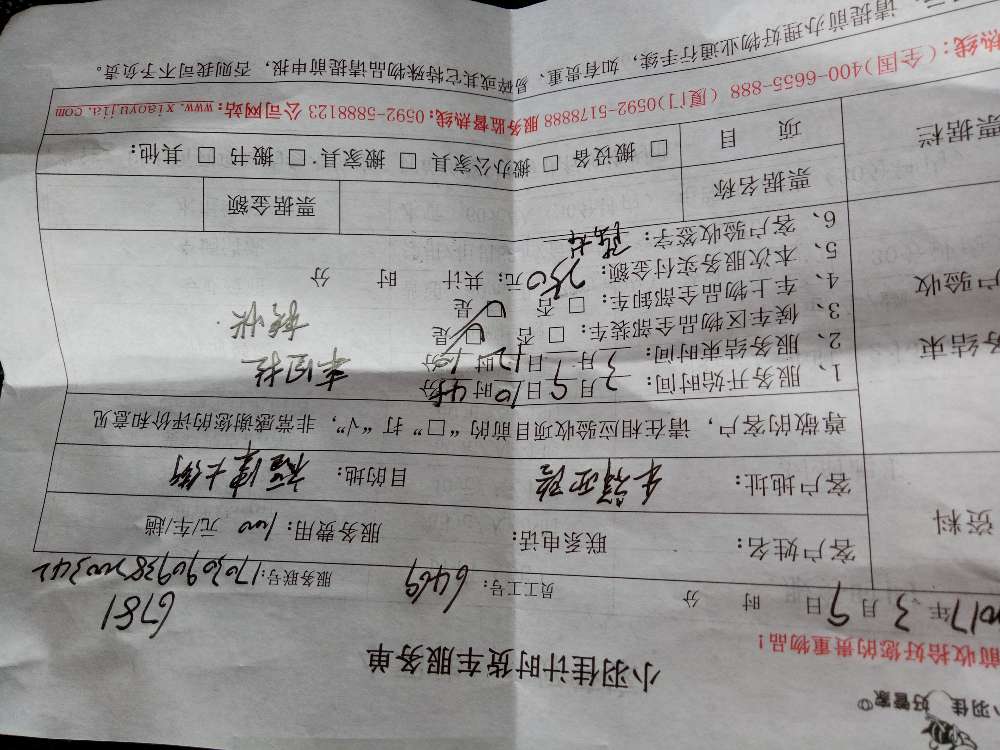 小羽佳 好管家
前收拾好您的贵重物品！
小羽佳计时货车服务单
2017年 3月 9日 时 分 员工工号：6469 服务联号：17030909385200342
6781
资料
客户姓名： 联系电话： 服务费用：100 元/车/趟
客户地址： 目的地：福津大街
尊敬的客户，请在相应验收项目前的“□”打“√”，非常感谢您的评价和意见
务结束
户验收
1、服务开始时间：3月9日10时45分
2、服务结束时间：3月9日12时10分
3、候车区物品全部装车：□ 否 □ 是
4、车上物品全部卸车：□ 否 □ 是
5、本次服务实付金额：250元；共计 时 分
6、客户验收签字：
票据栏
票据名称 票据金额
项 目 □ 搬设备 □ 搬办公家具 □ 搬家具 □ 搬书 □ 其他：
热线：（全国）400-6655-888（厦门）0592-5178888 服务监督热线：0592-5888123 公司网站：www.xiaoyujia.com
请提前办理好物业通行手续，如有贵重、易碎或其它特殊物品请提前申报，否则我司不予负责。